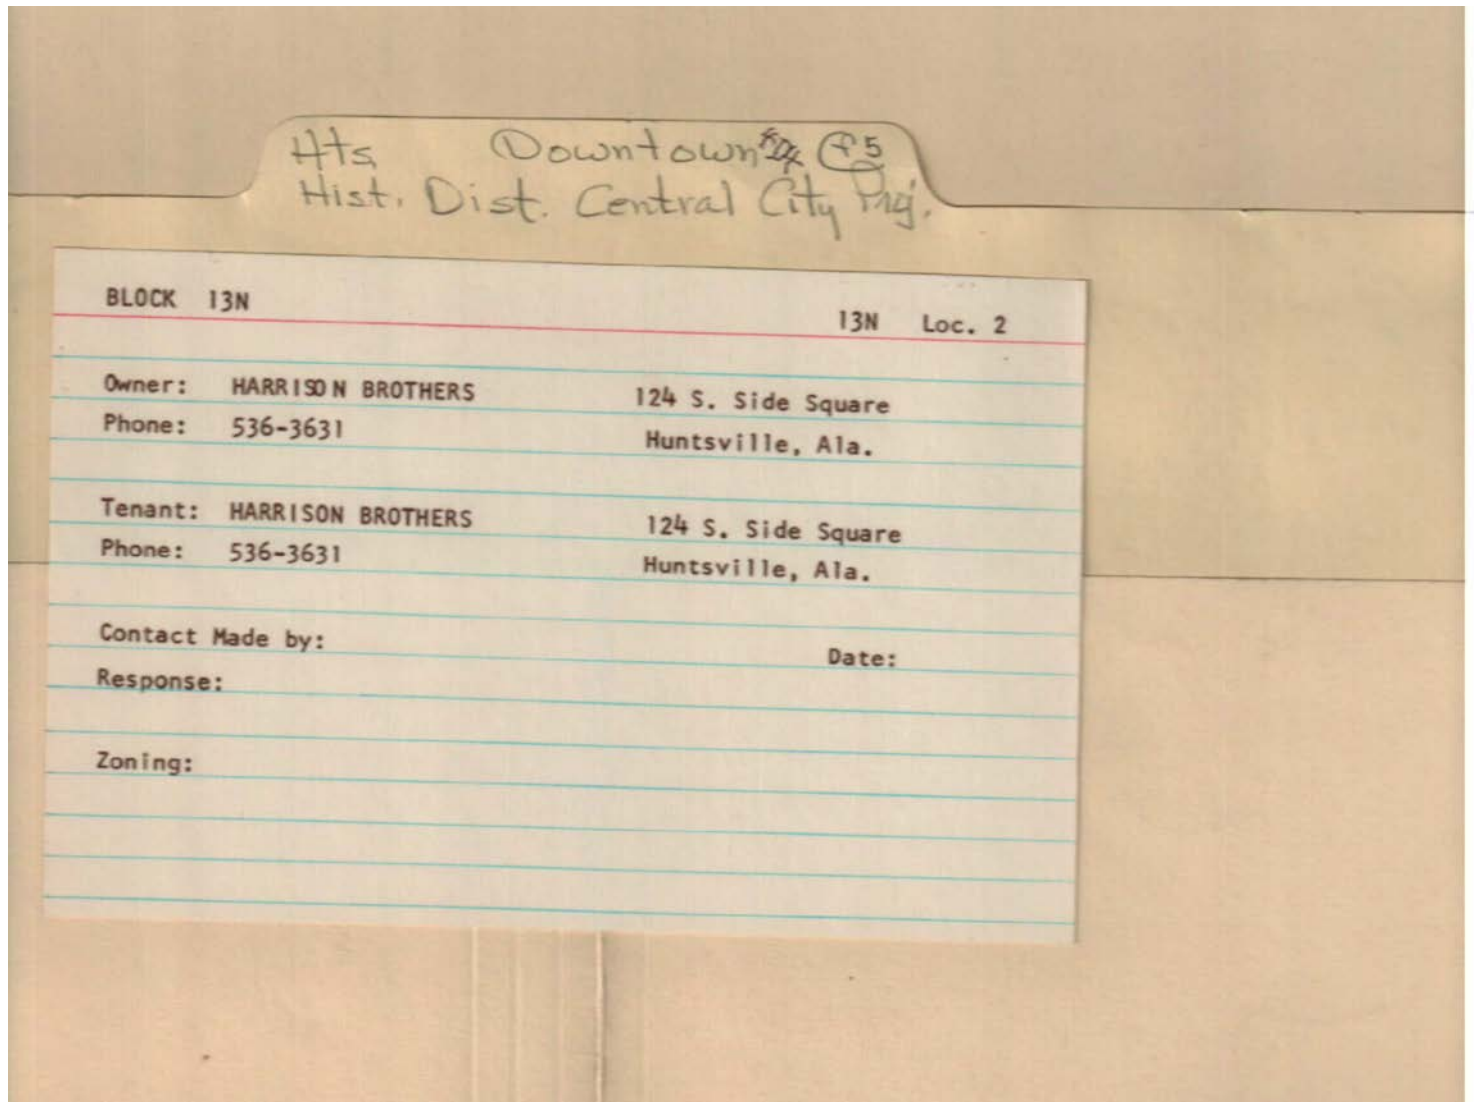 Hts Downtown F5
Hist. Dist. Central City Proj.
BLOCK 13N
13N Loc. 2
Owner: HARRISON BROTHERS 124 S. Side Square
Phone: 536-3631 Huntsville, Ala.
Tenant: HARRISON BROTHERS 124 S. Side Square
Phone: 536-3631 Huntsville, Ala.
Contact Made by: Date:
Response:
Zoning: